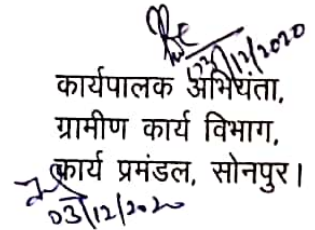 03/12/2020
कार्यपालक अभियंता,
ग्रामीण कार्य विभाग,
कार्य प्रमंडल, सोनपुर।
03/12/2020